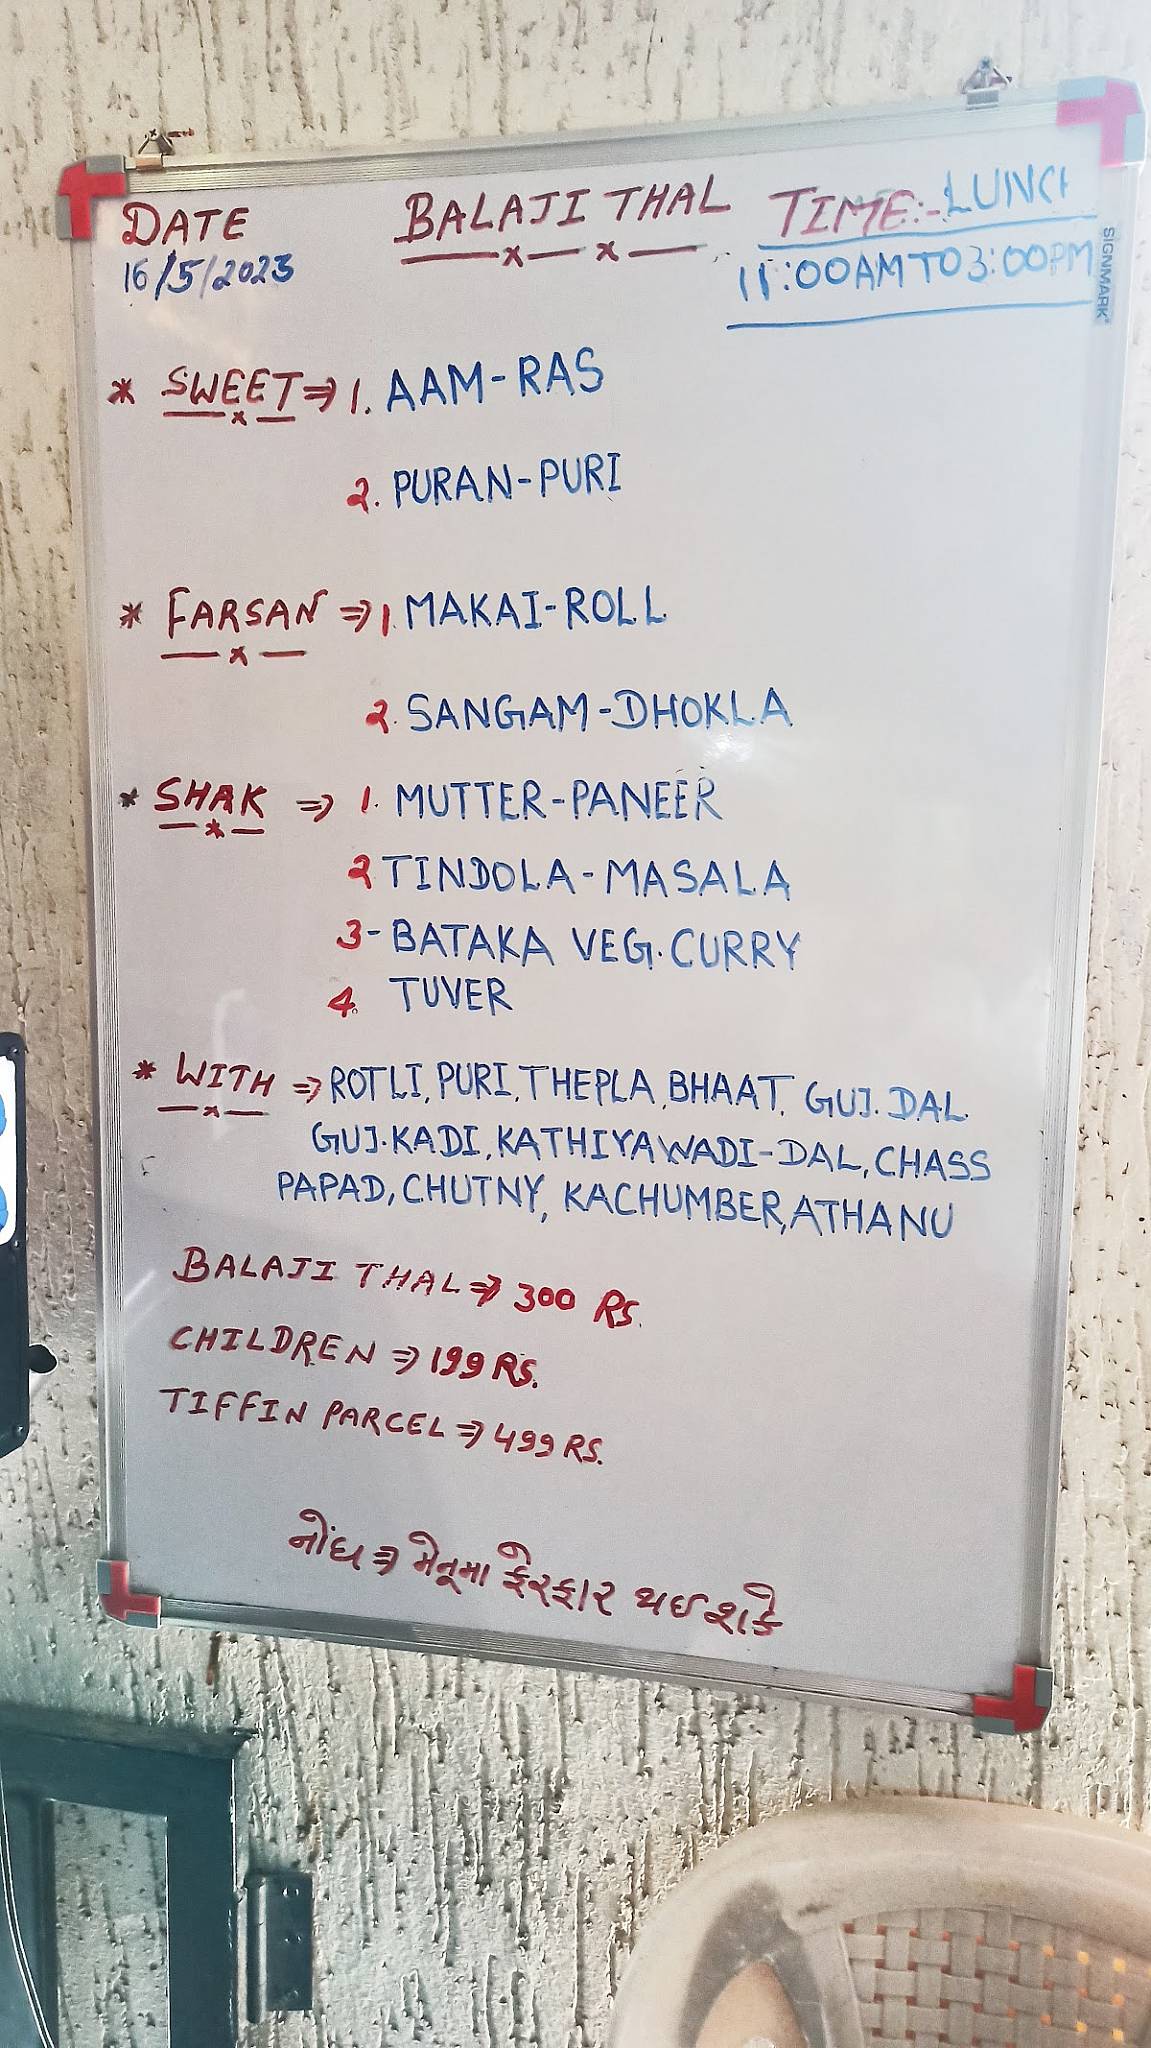 DATE BALAJI THAL TIME:- LUNCH
16/5/2023 11:00AM TO 3:00PM
SIGNMARK
* SWEET ⇒ 1. AAM-RAS
2. PURAN-PURI
* FARSAN ⇒ 1. MAKAI-ROLL
2. SANGAM-DHOKLA
* SHAK ⇒ 1. MUTTER-PANEER
2 TINDOLA-MASALA
3- BATAKA VEG. CURRY
4. TUVER
* WITH ⇒ ROTLI, PURI, THEPLA, BHAAT, GUJ. DAL
GUJ. KADI, KATHIYAWADI-DAL, CHASS
PAPAD, CHUTNY, KACHUMBER, ATHANU
BALAJI THAL ⇒ 300 RS.
CHILDREN ⇒ 199 RS.
TIFFIN PARCEL ⇒ 499 RS.
નોંધ ⇒ મેનૂમા ફેરફાર થઇ શકે